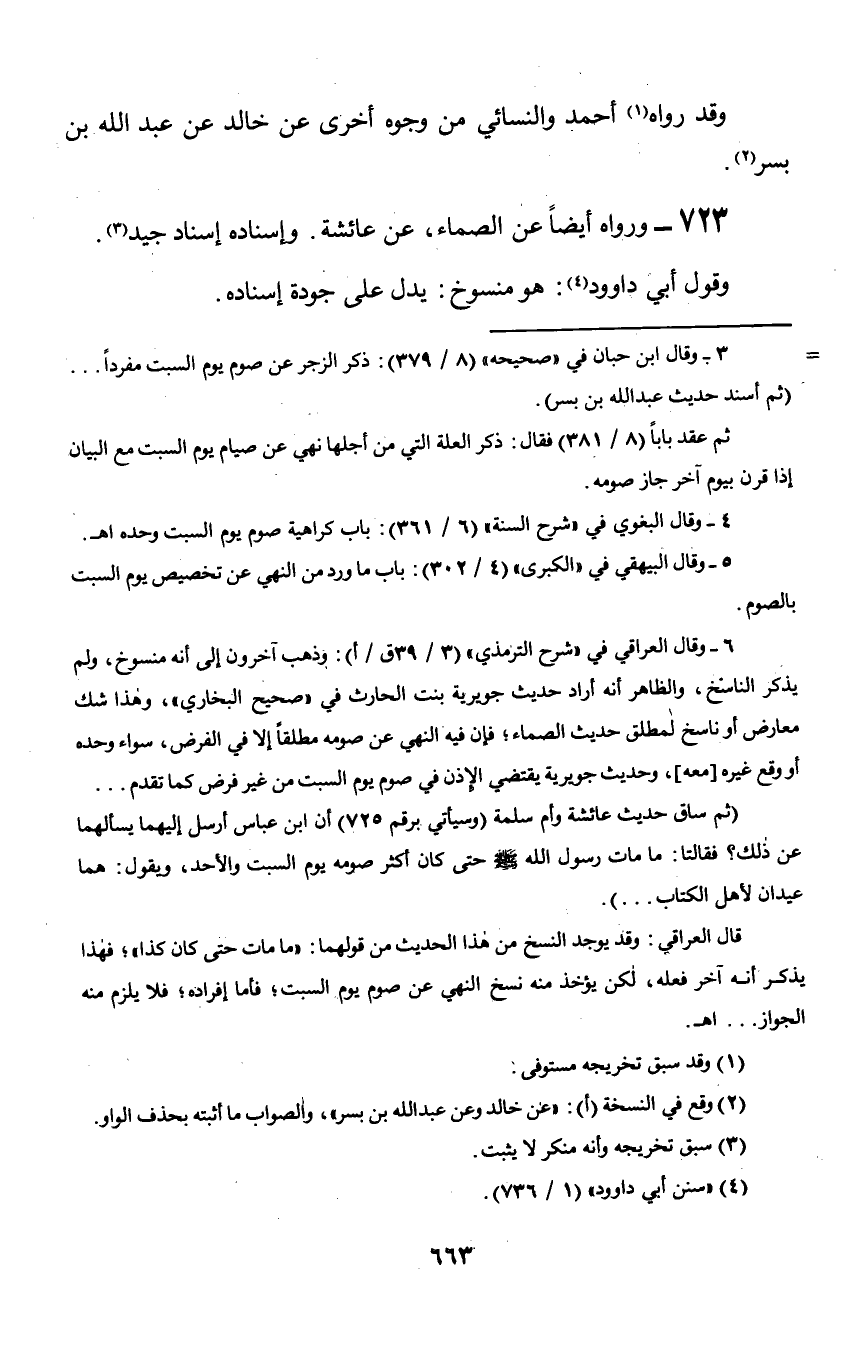 وقد رواه(١) أحمد والنسائي من وجوه أخرى عن خالد عن عبد الله بن
بسر(٢).
٧٢٣ ـ ورواه أيضاً عن الصماء، عن عائشة. وإسناده إسناد جيد(٣).
وقول أبي داوود(٤): هو منسوخ: يدل على جودة إسناده.
= ٣ ـ وقال ابن حبان في «صحيحه» (٨ / ٣٧٩): ذكر الزجر عن صوم يوم السبت مفرداً...
(ثم أسند حديث عبدالله بن بسر).
ثم عقد باباً (٨ / ٣٨١) فقال: ذكر العلة التي من أجلها نهي عن صيام يوم السبت مع البيان
إذا قرن بيوم آخر جاز صومه.
٤ ـ وقال البغوي في «شرح السنة» (٦ / ٣٦١): باب كراهية صوم يوم السبت وحده اهـ.
٥ ـ وقال البيهقي في «الكبرى» (٤ / ٣٠٢): باب ما ورد من النهي عن تخصيص يوم السبت
بالصوم.
٦ ـ وقال العراقي في «شرح الترمذي» (٣ / ٣٩ق / أ): وذهب آخرون إلى أنه منسوخ، ولم
يذكر الناسخ، والظاهر أنه أراد حديث جويرية بنت الحارث في «صحيح البخاري»، وهٰذا شك
معارض أو ناسخ لمطلق حديث الصماء؛ فإن فيه النهي عن صومه مطلقاً إلا في الفرض، سواء وحده
أو وقع غيره [معه]، وحديث جويرية يقتضي الإذن في صوم يوم السبت من غير فرض كما تقدم...
(ثم ساق حديث عائشة وأم سلمة (وسيأتي برقم ٧٢٥) أن ابن عباس أرسل إليهما يسألهما
عن ذٰلك؟ فقالتا: ما مات رسول الله ﷺ حتى كان أكثر صومه يوم السبت والأحد، ويقول: هما
عيدان لأهل الكتاب...).
قال العراقي: وقد يوجد النسخ من هٰذا الحديث من قولهما: «ما مات حتى كان كذا»؛ فهٰذا
يذكر أنه آخر فعله، لٰكن يؤخذ منه نسخ النهي عن صوم يوم السبت؛ فأما إفراده؛ فلا يلزم منه
الجواز... اهـ.
(١) وقد سبق تخريجه مستوفى:
(٢) وقع في النسخة (أ): «عن خالد وعن عبدالله بن بسر»، والصواب ما أثبته بحذف الواو.
(٣) سبق تخريجه وأنه منكر لا يثبت.
(٤) «سنن أبي داوود» (١ / ٧٣٦).
٦٦٣